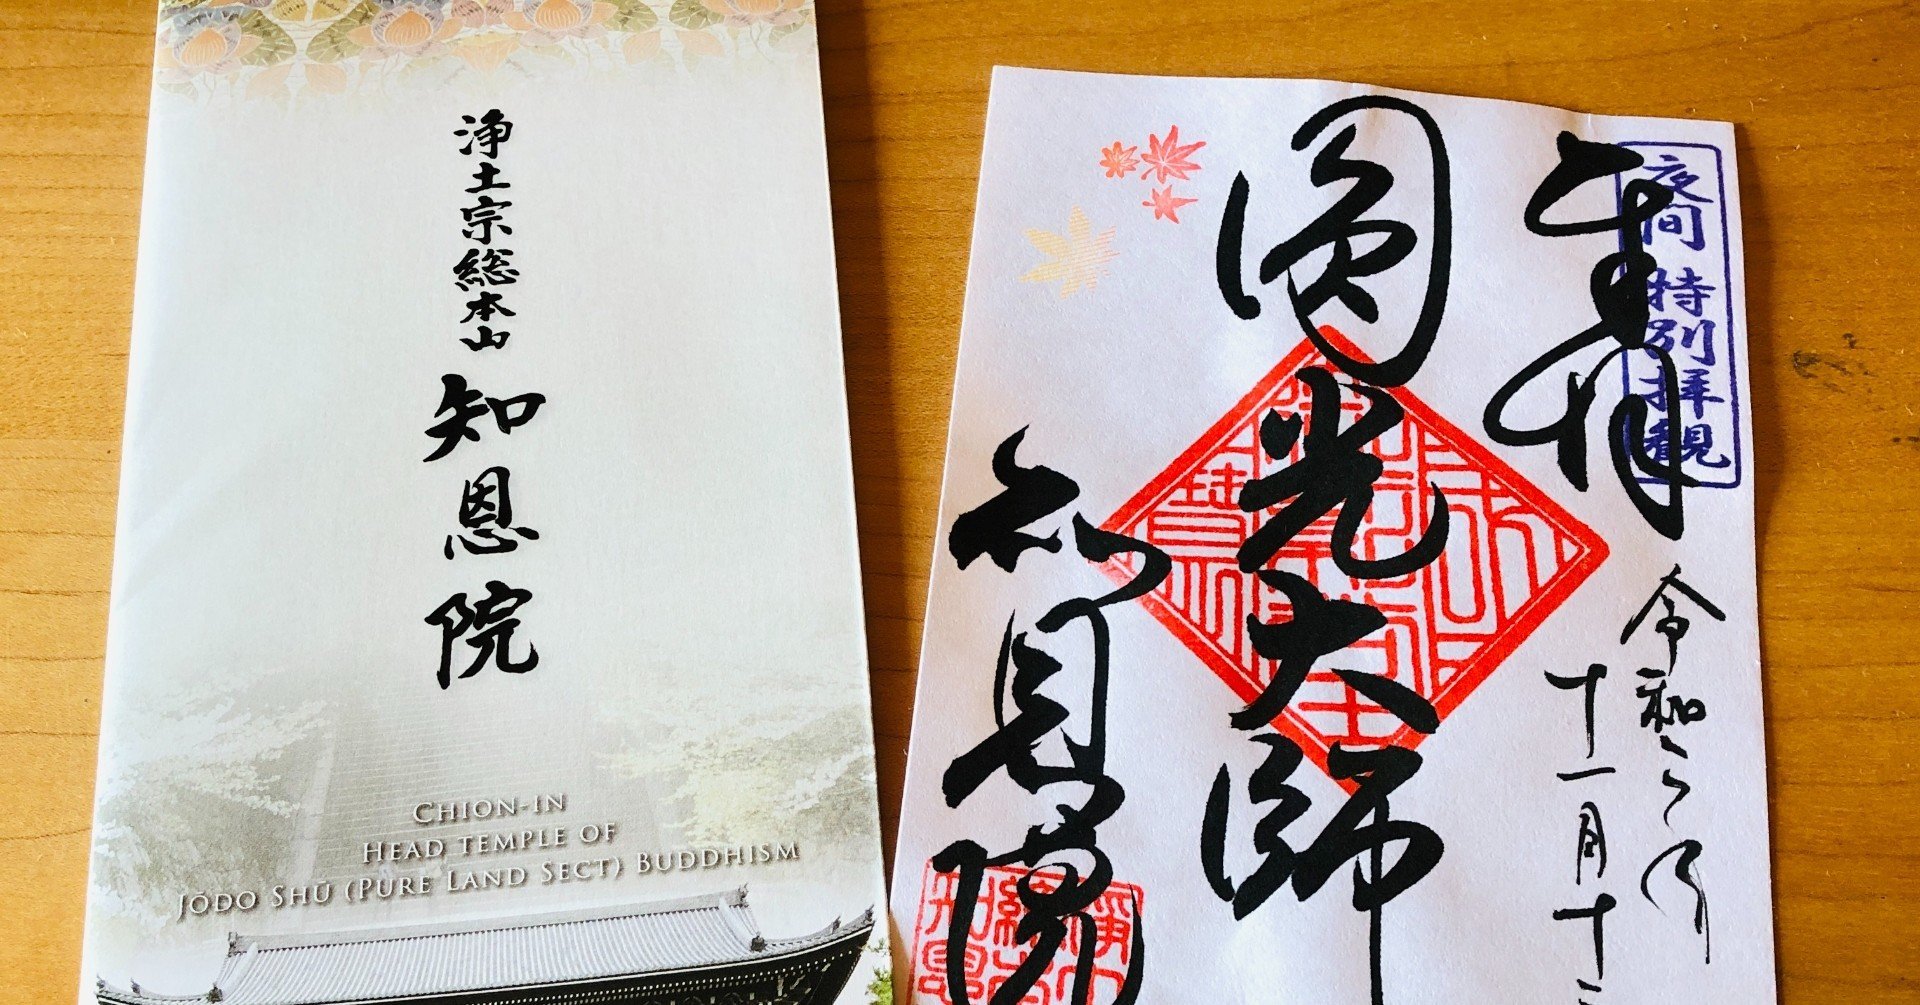 浄土宗総本山
知恩院
CHION-IN
HEAD TEMPLE OF
JŌDO SHŪ (PURE LAND SECT) BUDDHISM
夜間 特別拝観
奉拝
令和二年
十一月十
圓光大師
知恩院